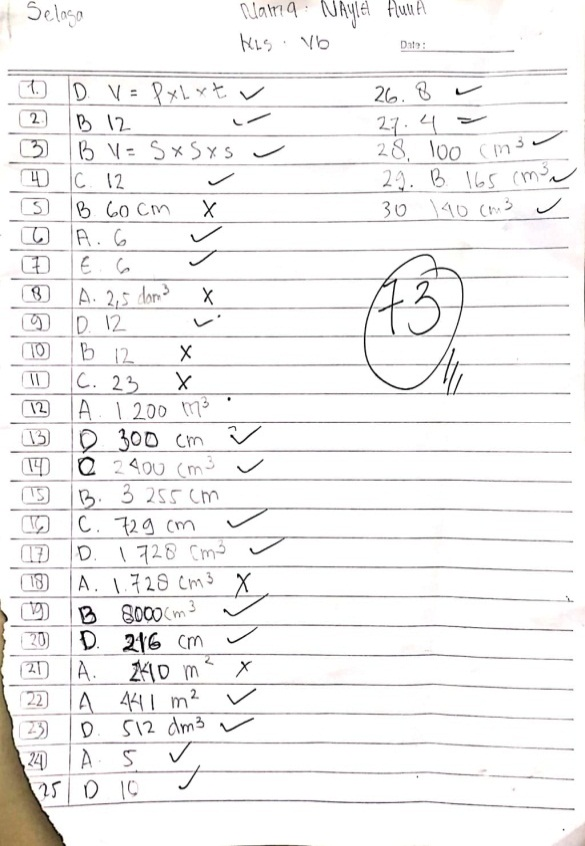 Selasa
Nama: NAylA AuliA
KLS. Vb
Date:
1. D. V = P x L x t ✓
2 B 12 ✓
3 B V = S x S x s ✓
4 C. 12 ✓
5 B 60 cm X
6 A. 6 ✓
7 E. 6 ✓
8 A. 2,5 dam³ X
9 D. 12 ✓
10 B 12 X
11 C. 23 X
12 A. 1 200 m³
13 D 300 cm ✓
14 C 2400 cm³ ✓
15 B. 3 255 cm
16 C. 729 cm ✓
17 D. 1 728 cm³ ✓
18 A. 1.728 cm³ X
19 B 8000 cm³ ✓
20 D. 216 cm ✓
21 A. 240 m² X
22 A 441 m² ✓
23 D. 512 dm³ ✓
24 A. 5 ✓
25 D 10 ✓
26. 8 ✓
27. 4
28. 100 cm³ ✓
29. B 165 cm³ ✓
30 140 cm³ ✓
73